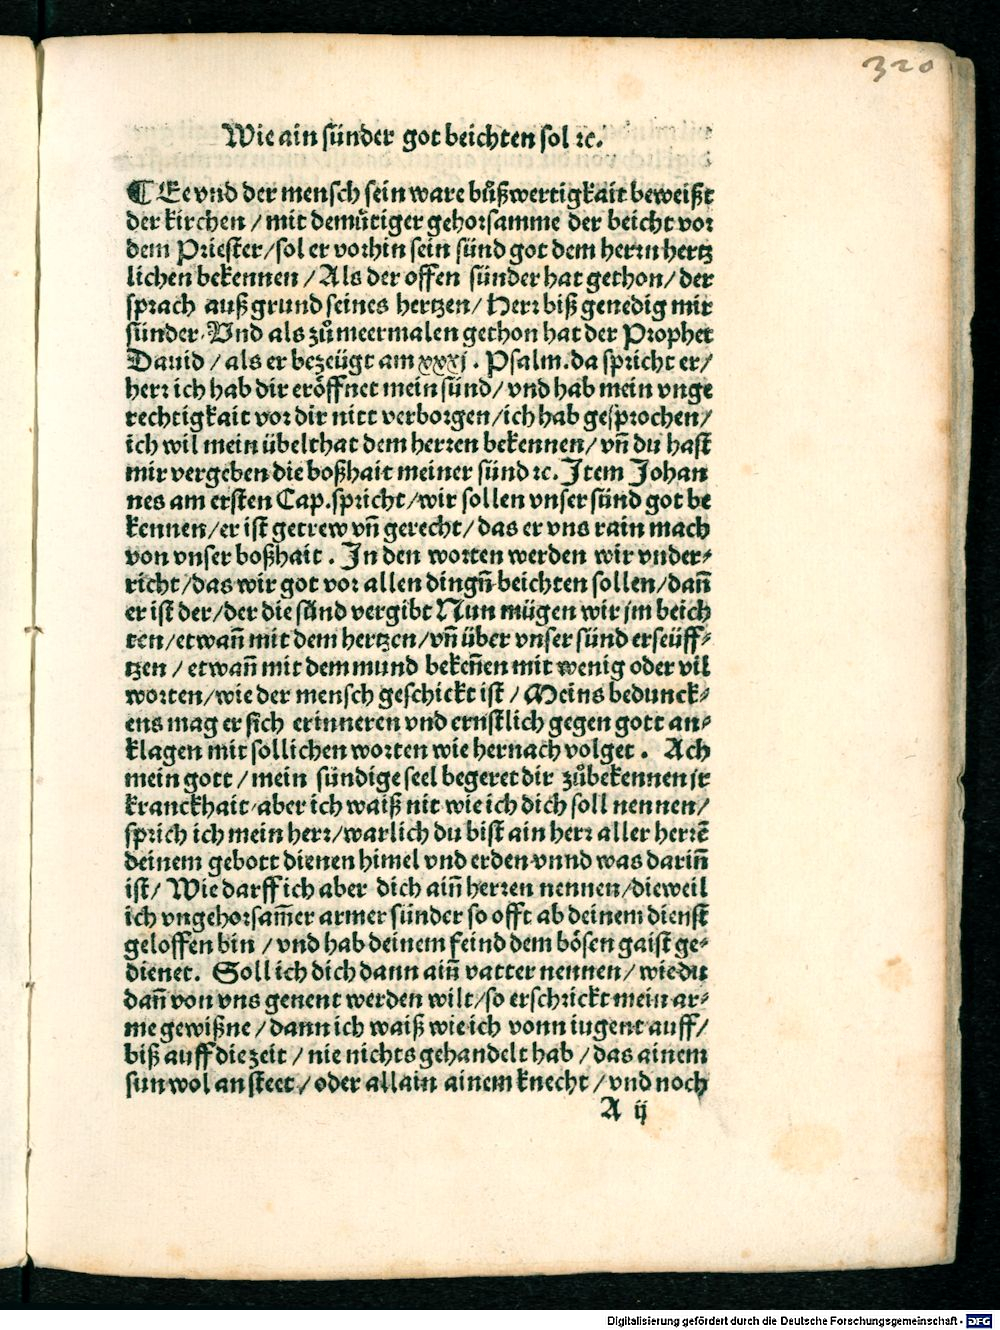 320
Wie ain sünder got beichten sol ꝛc.
¶ Ee vnd der mensch sein ware bůßwertigkait beweißt
der kirchen / mit demuͤtiger gehorsamme der beicht vor
dem Priester / sol er vorhin sein sünd got dem herrn hertz
lichen bekennen / Als der offen sünder hat gethon / der
sprach auß grund seines hertzen / Herr biß genedig mir
sünder. Vnd als zůmeermalen gethon hat der Prophet
Dauid / als er bezeügt am xxxj. Psalm. da spricht er /
herr ich hab dir eröffnet mein sünd / vnd hab mein vnge
rechtigkait vor dir nitt verborgen / ich hab gesprochen /
ich wil mein übelthat dem herren bekennen / vñ du hast
mir vergeben die boßhait meiner sünd ꝛc. Item Johan
nes am ersten Cap. spricht / wir sollen vnser sünd got be
kennen / er ist getrew vñ gerecht / das er vns rain mach
von vnser boßhait. In den worten werden wir vnder⸗
richt / das wir got vor allen dingñ beichten sollen / dañ
er ist der / der die sünd vergibt Nun mügen wir jm beich
ten / etwañ mit dem hertzen / vñ über vnser sünd erseüff⸗
tzen / etwañ mit dem mund bekeñen mit wenig oder vil
worten / wie der mensch geschickt ist / Meins bedunck⸗
ens mag er sich erinneren vnd ernstlich gegen gott an⸗
klagen mit sollichen worten wie hernach volget. Ach
mein gott / mein sündige seel begeret dir zůbekennen jr
kranckhait / aber ich waiß nit wie ich dich soll nennen /
sprich ich mein herr / warlich du bist ain herr aller herrē
deinem gebott dienen himel vnd erden vnnd was dariñ
ist / Wie darff ich aber dich aiñ herren nennen / dieweil
ich vngehorsam̄er armer sünder so offt ab deinem dienst
geloffen bin / vnd hab deinem feind dem bösen gaist ge⸗
dienet. Soll ich dich dann aiñ vatter nennen / wie du
dañ von vns genent werden wilt / so erschrickt mein ar⸗
me gewißne / dann ich waiß wie ich vonn iugent auff /
biß auff die zeit / nie nichts gehandelt hab / das ainem
sun wol an steet / oder allain ainem knecht / vnd noch
A ij
Digitalisierung gefördert durch die Deutsche Forschungsgemeinschaft - DFG